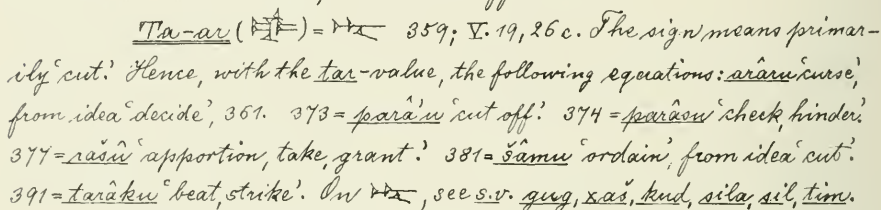 Ta-ar (𒋻) = 𒋻 359; V. 19, 26 c. The sign means primar-
ily 'cut.' Hence, with the tar-value, the following equations: arâru 'curse,'
from idea 'decide', 361. 373 = parâ'u 'cut off.' 374 = parâsu 'check, hinder.'
377 = rašû 'apportion, take, grant.' 381 = šâmu 'ordain', from idea 'cut'.
391 = tarâku 'beat, strike'. On 𒋻, see s.v. gug, xaš, kud, sila, sil, tim.